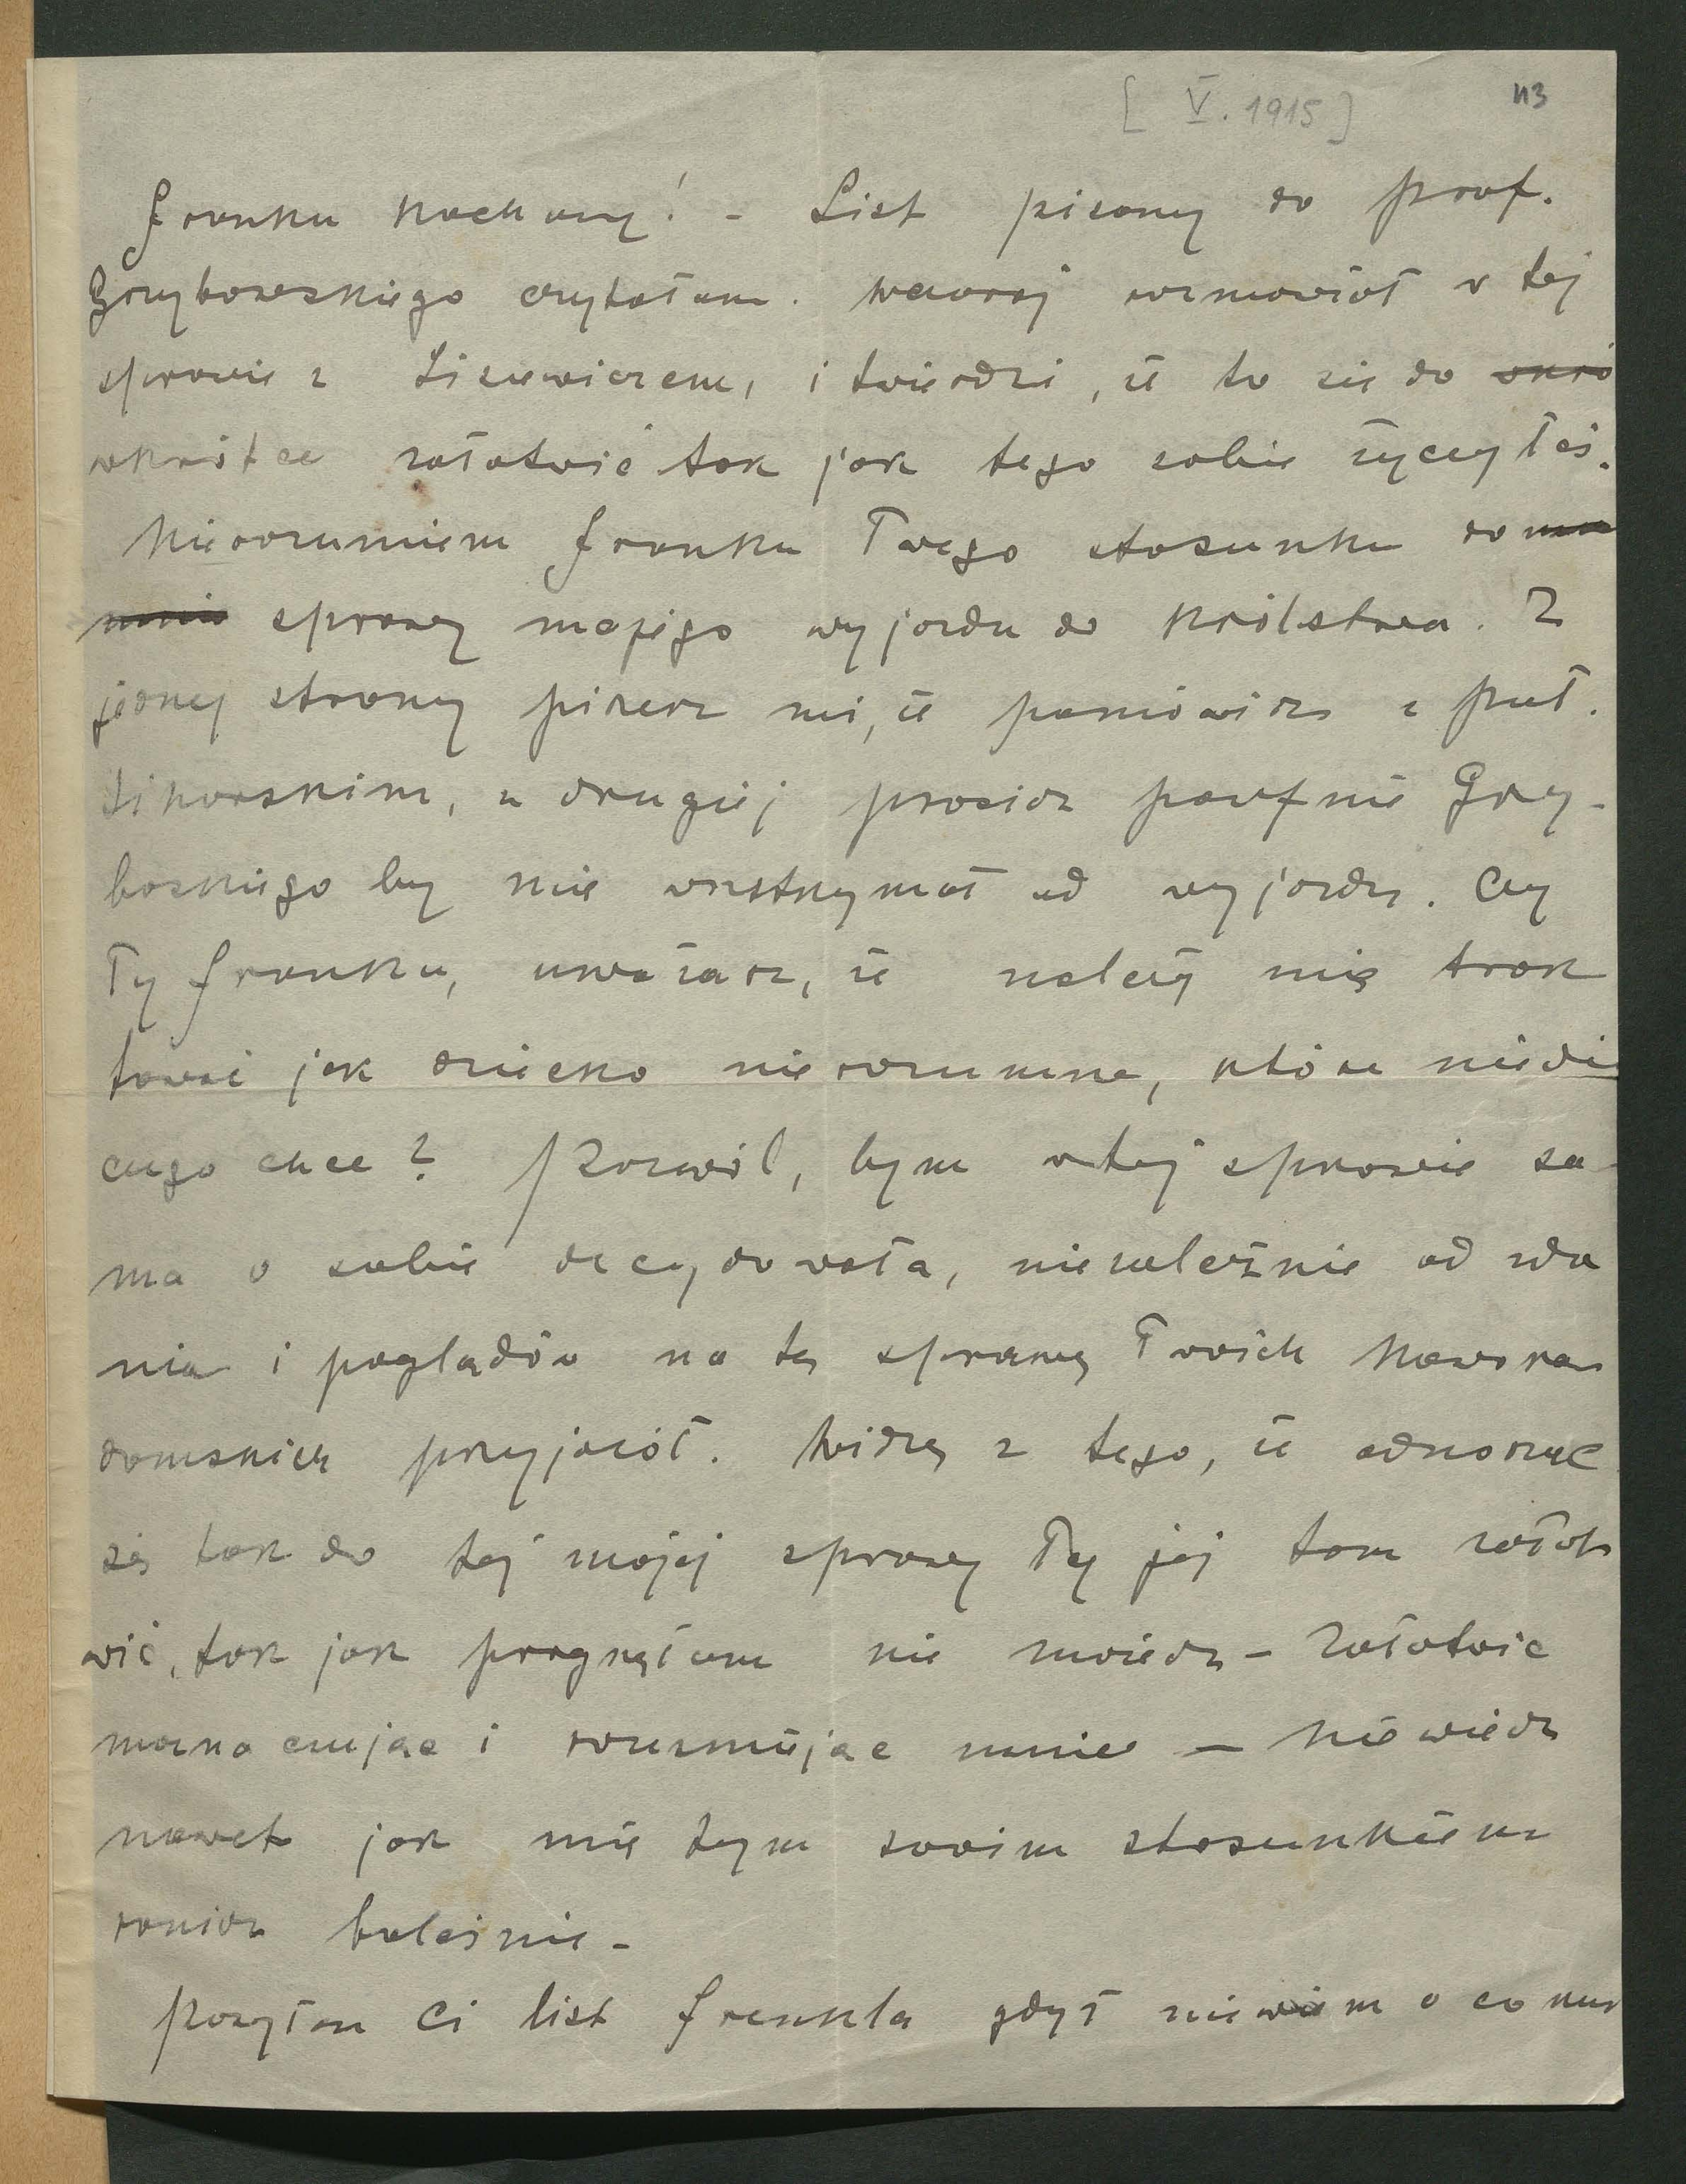 [ V. 1915 ] 113
Franku kochany! - List pisany do prof.
Grzybowskiego czytałam. Wczoraj rozmawiał w tej
sprawie z Lisiewiczem, i twierdzi, że to się da
wkrótce załatwić tak jak tego sobie życzyłeś.
Nierozumiem Franku Twego stosunku do
sprawy mojego wyjazdu do Królestwa. Z
jednej strony piszesz mi, że pomówisz z puł.
Sikorskim, z drugiej prosisz poufnie Grzy-
boskiego by mię wstrzymał od wyjazdu. Czy
Ty Franku, uważasz, że należy mię trak
tować jak dziecko nierozumne, które niewie
czego chce? Pozwól, bym w tej sprawie sa
ma o sobie decydowała, niezależnie od zda
nia i poglądów na tę sprawę Twoich nowora
domskich przyjaciół. Widzę z tego, że odnosząc
się tak do tej mojej sprawy Ty jej tam załat
wić, tak jak pragnęłam nie możesz - Załatwić
można czując i rozumiejąc mnie - Nie wiesz
nawet jak mię tym swoim stosunkiem
ranisz boleśnie -
Posyłam Ci list Frenkla gdyż niewiem o co mu